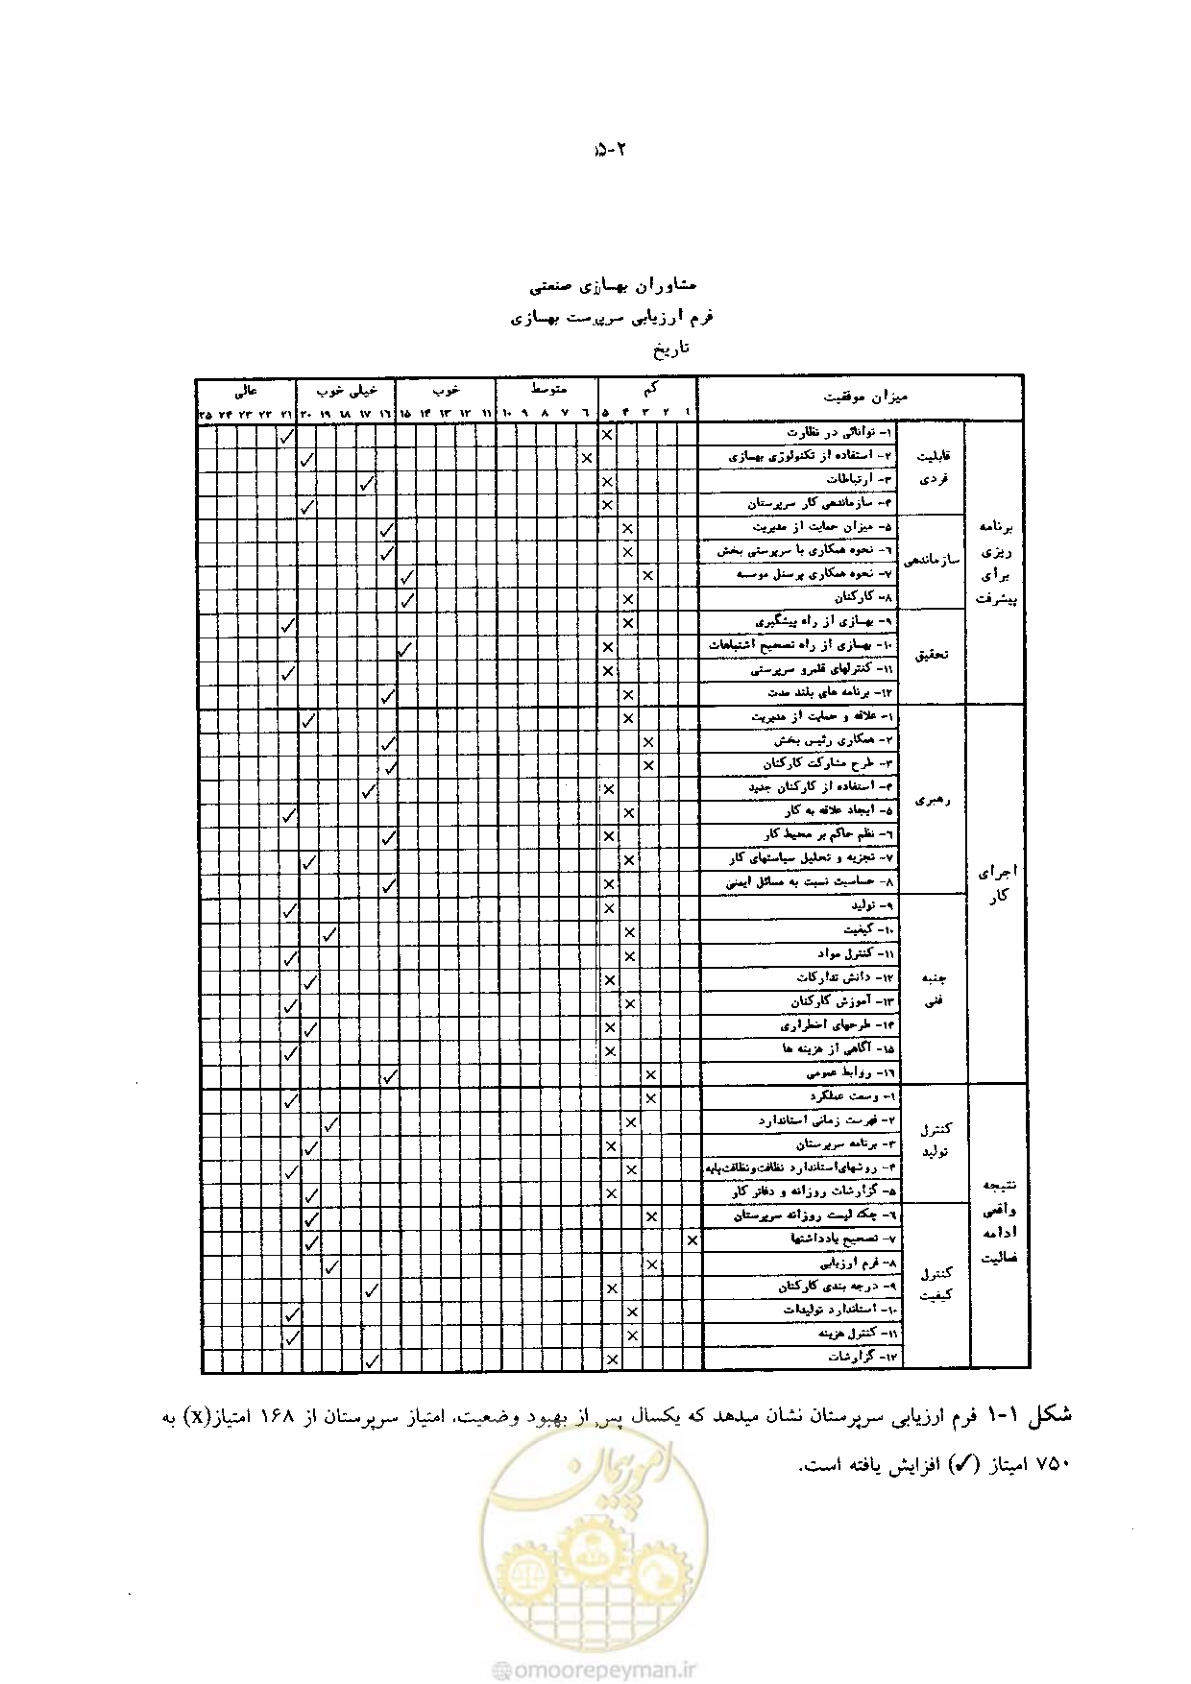 ۵-۲
مشاوران بهسازی صنعتی
فرم ارزیابی سرپرست بهسازی
تاریخ
میزان موفقیت
کم
متوسط
خوب
خیلی خوب
عالی
۱ ۲ ۳ ۴ ۵ ۶ ۷ ۸ ۹ ۱۰ ۱۱ ۱۲ ۱۳ ۱۴ ۱۵ ۱۶ ۱۷ ۱۸ ۱۹ ۲۰ ۲۱ ۲۲ ۲۳ ۲۴ ۲۵
برنامه
ریزی
برای
پیشرفت
قابلیت
فردی
۱- توانائی در نظارت
۲- استفاده از تکنولوژی بهسازی
۳- ارتباطات
۴- سازماندهی کار سرپرستان
سازماندهی
۵- میزان حمایت از مدیریت
۶- نحوه همکاری با سرپرستی بخش
۷- نحوه همکاری پرسنل موسسه
۸- کارکنان
تحقیق
۹- بهسازی از راه پیشگیری
۱۰- بهسازی از راه تصحیح اشتباهات
۱۱- کنترلهای قلمرو سرپرستی
۱۲- برنامه های بلند مدت
اجرای
کار
رهبری
۱- علاقه و حمایت از مدیریت
۲- همکاری رئیس بخش
۳- طرح مشارکت کارکنان
۴- استفاده از کارکنان جدید
۵- ایجاد علاقه به کار
۶- نظم حاکم بر محیط کار
۷- تجزیه و تحلیل سیاستهای کار
۸- حساسیت نسبت به مسائل ایمنی
جنبه
فنی
۹- تولید
۱۰- کیفیت
۱۱- کنترل مواد
۱۲- دانش تدارکات
۱۳- آموزش کارکنان
۱۴- طرحهای اضطراری
۱۵- آگاهی از هزینه ها
۱۶- روابط عمومی
نتیجه
واقعی
ادامه
فعالیت
کنترل
تولید
۱- وسعت عملکرد
۲- فهرست زمانی استاندارد
۳- برنامه سرپرستان
۴- روشهای استاندارد نظافت و نظافت پایه
۵- گزارشات روزانه و دفاتر کار
کنترل
کیفیت
۶- چک لیست روزانه سرپرستان
۷- تصحیح یادداشتها
۸- فرم ارزیابی
۹- درجه بندی کارکنان
۱۰- استاندارد تولیدات
۱۱- کنترل هزینه
۱۲- گزارشات
شکل ۱-۱ فرم ارزیابی سرپرستان نشان میدهد که یکسال پس از بهبود وضعیت، امتیاز سرپرستان از ۱۶۸ امتیاز(x) به
۷۵۰ امیتاز (✓) افزایش یافته است.
امور پیمان
@omoorepeyman.ir